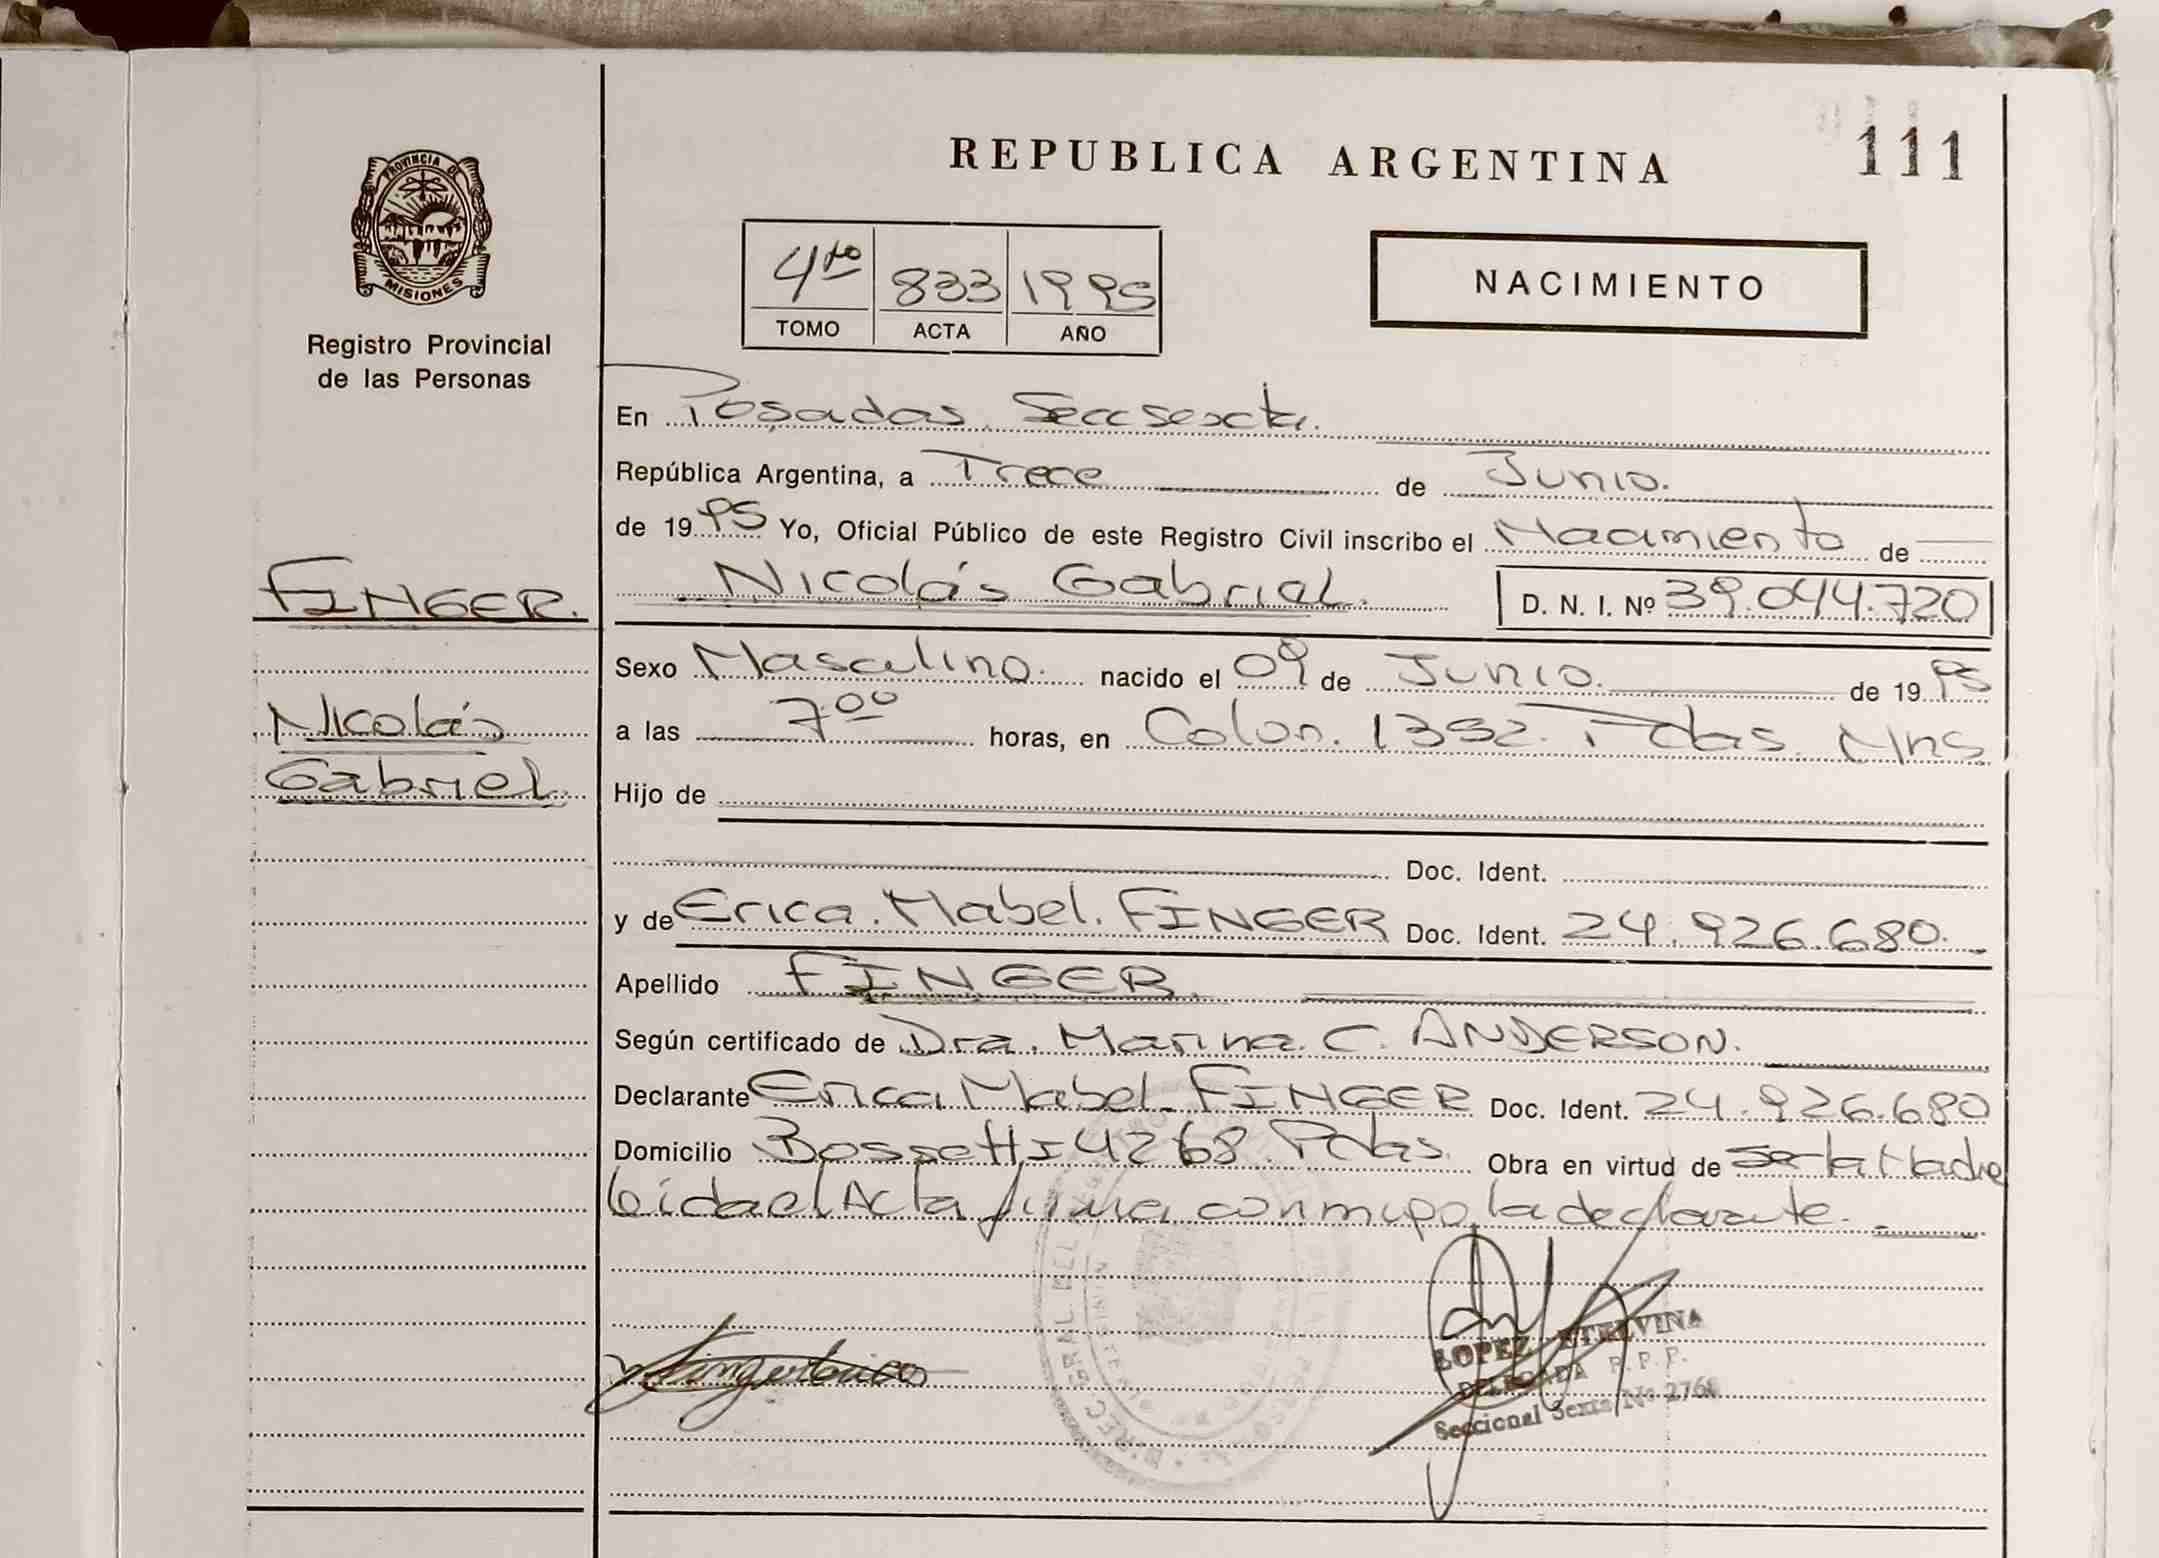 REPUBLICA ARGENTINA
111
PROVINCIA DE
MISIONES
Registro Provincial
de las Personas
4to 833 1995
TOMO ACTA AÑO
NACIMIENTO
En Posadas Secc sexta.
República Argentina, a Trece de Junio.
de 1995 Yo, Oficial Público de este Registro Civil inscribo el Nacimiento de
FINGER.
Nicolás Gabriel. D. N. I. Nº 39.044.720
Sexo Masculino. nacido el 09 de Junio. de 1995
Nicolás
a las 7 00 horas, en Colon. 1392. Pdas. Mns
Gabriel.
Hijo de
Doc. Ident.
y de Erica. Mabel. FINGER Doc. Ident. 24.926.680.
Apellido FINGER.
Según certificado de Dra. Marina. C. ANDERSON.
Declarante Erica Mabel. FINGER Doc. Ident. 24.926.680
Domicilio Bossetti 4268 Pdas. Obra en virtud de Ser la Madre
leida el Acta firma conmigo la declarante.
Finger Erica
LOPEZ ETELVINA
DELEGADA R. P. P.
Seccional Sexta Nº 2768